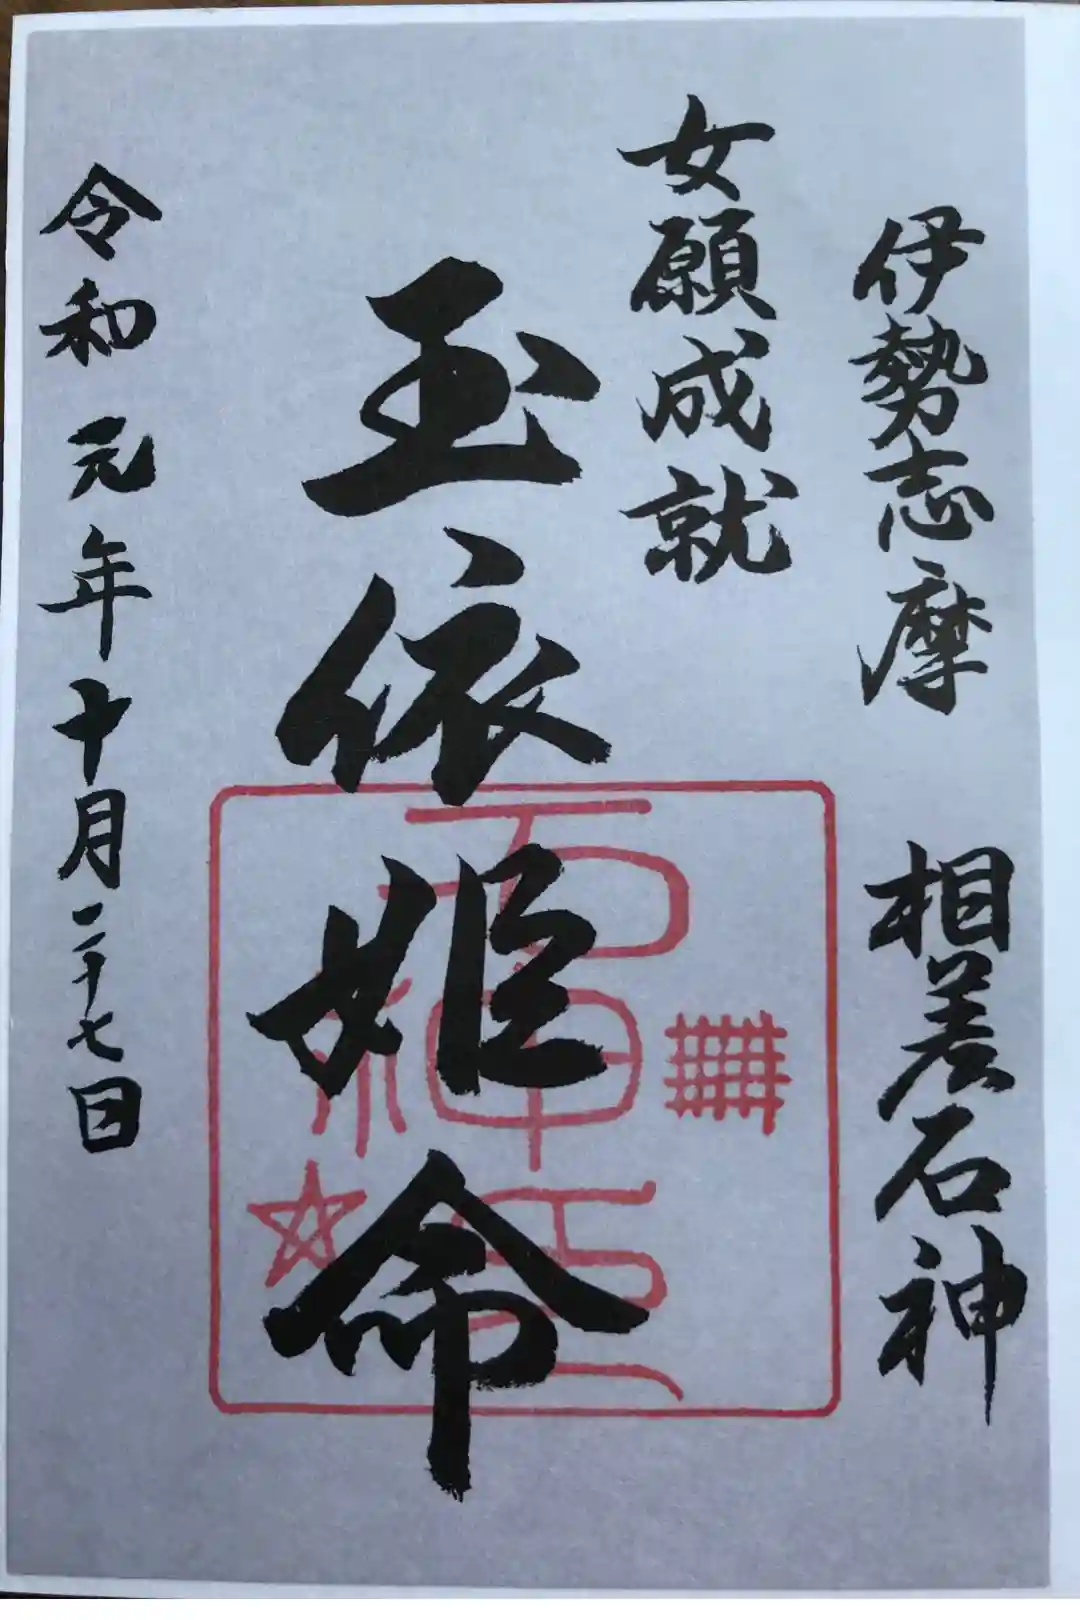 伊勢志摩 相差石神
女願成就
玉依姫命
令和元年十月二十七日